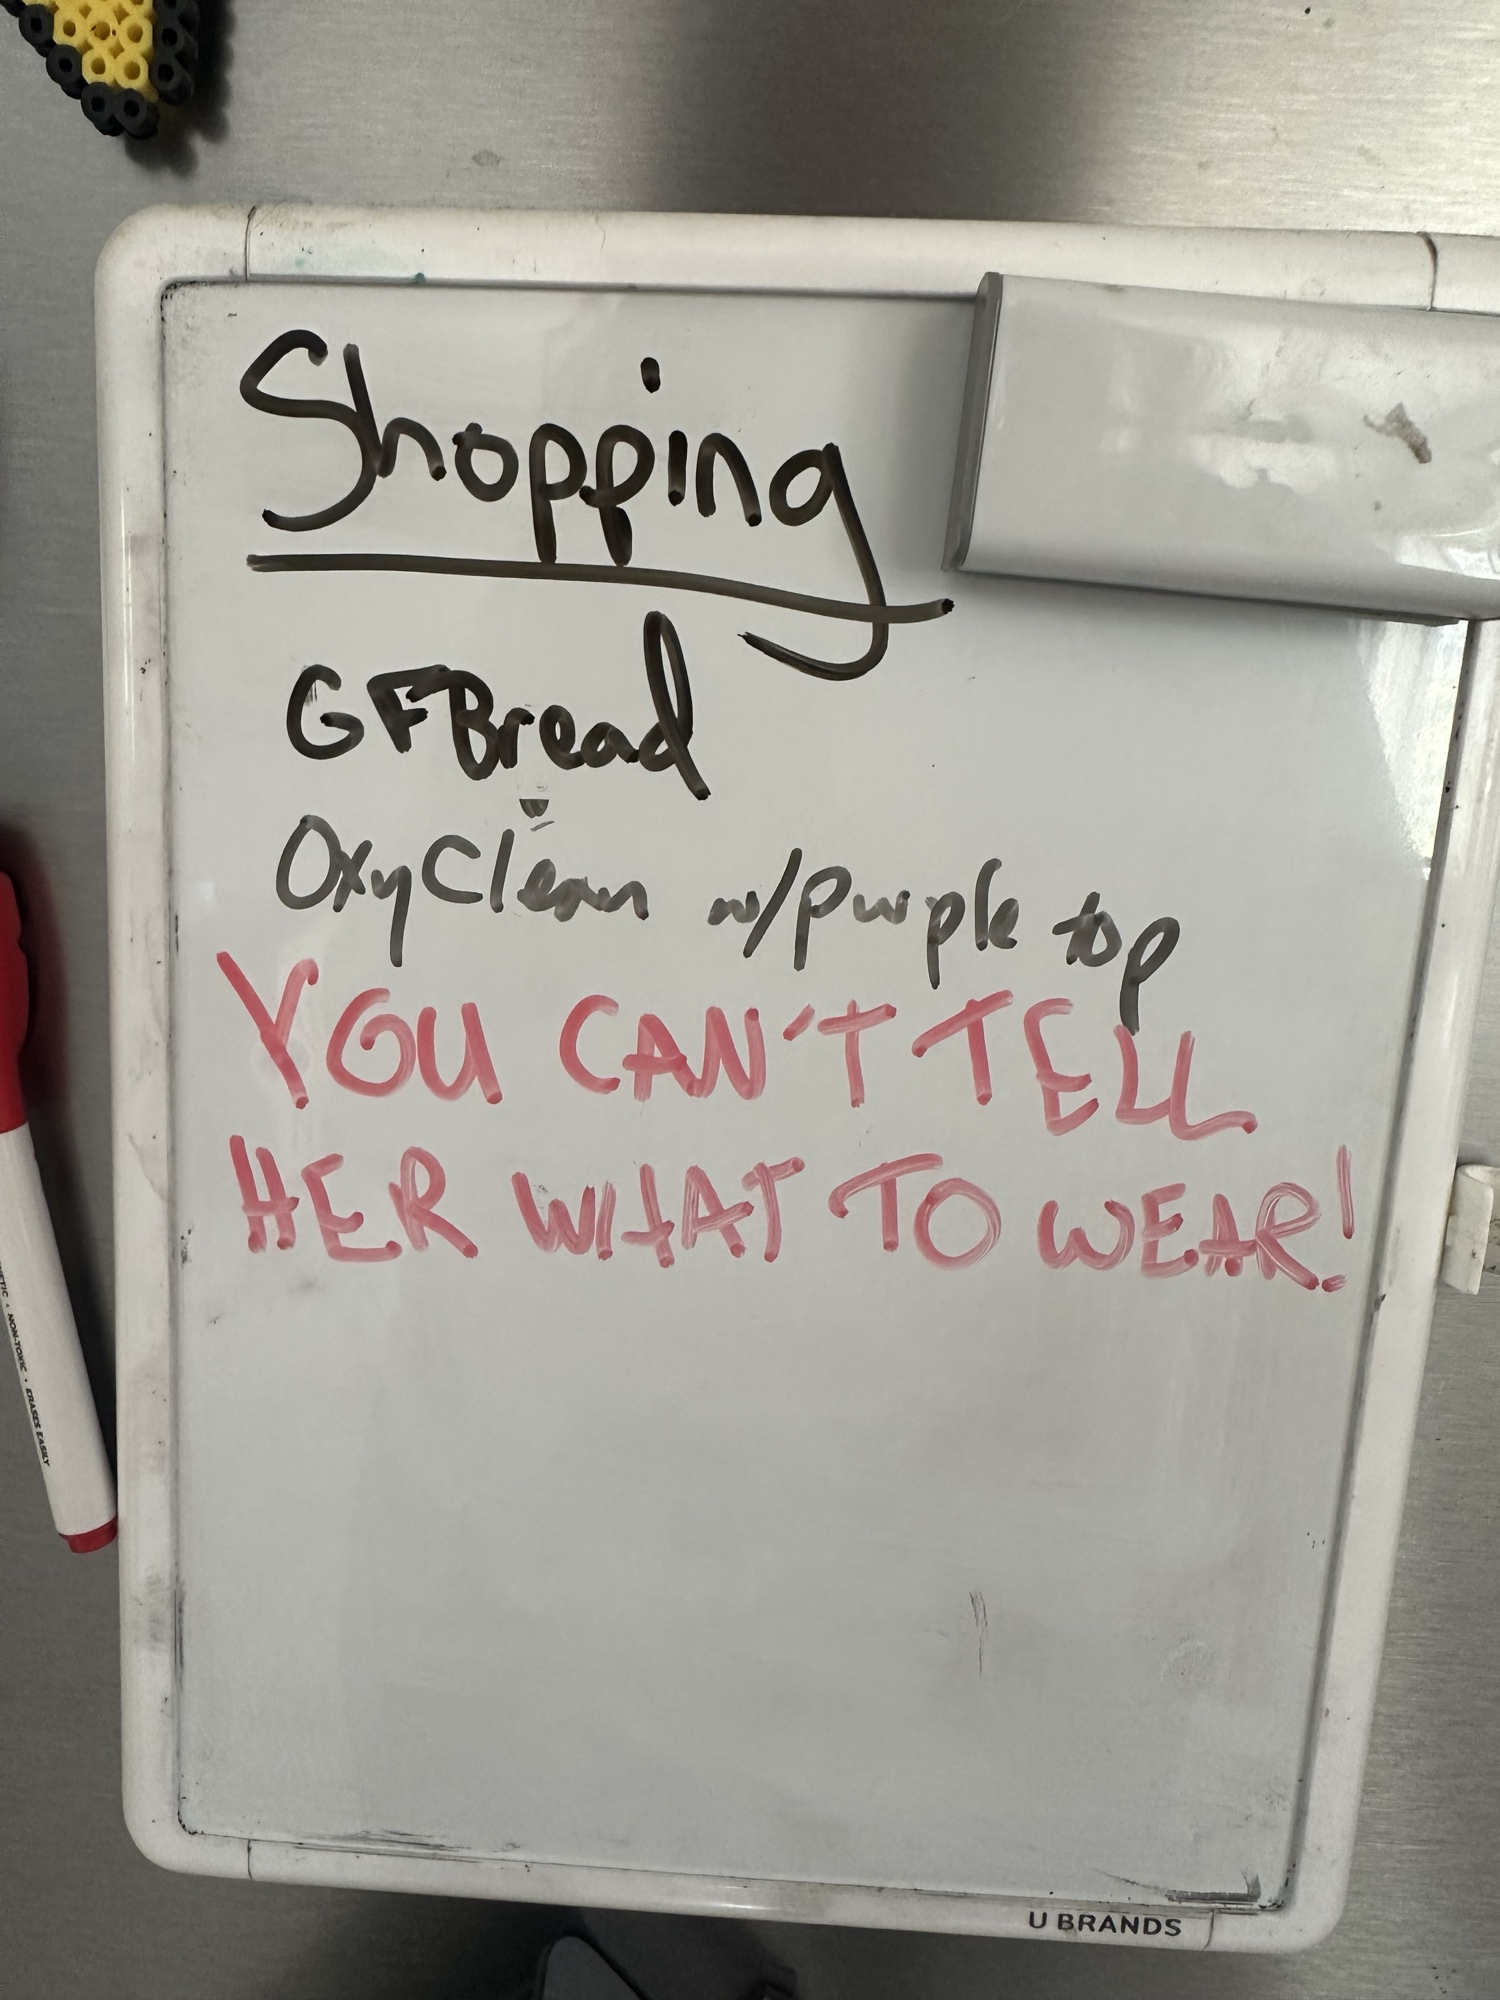 Shopping
GF Bread
OxyClean w/purple top
YOU CAN'T TELL
HER WHAT TO WEAR!
NON-TOXIC • ERASES EASILY
U BRANDS